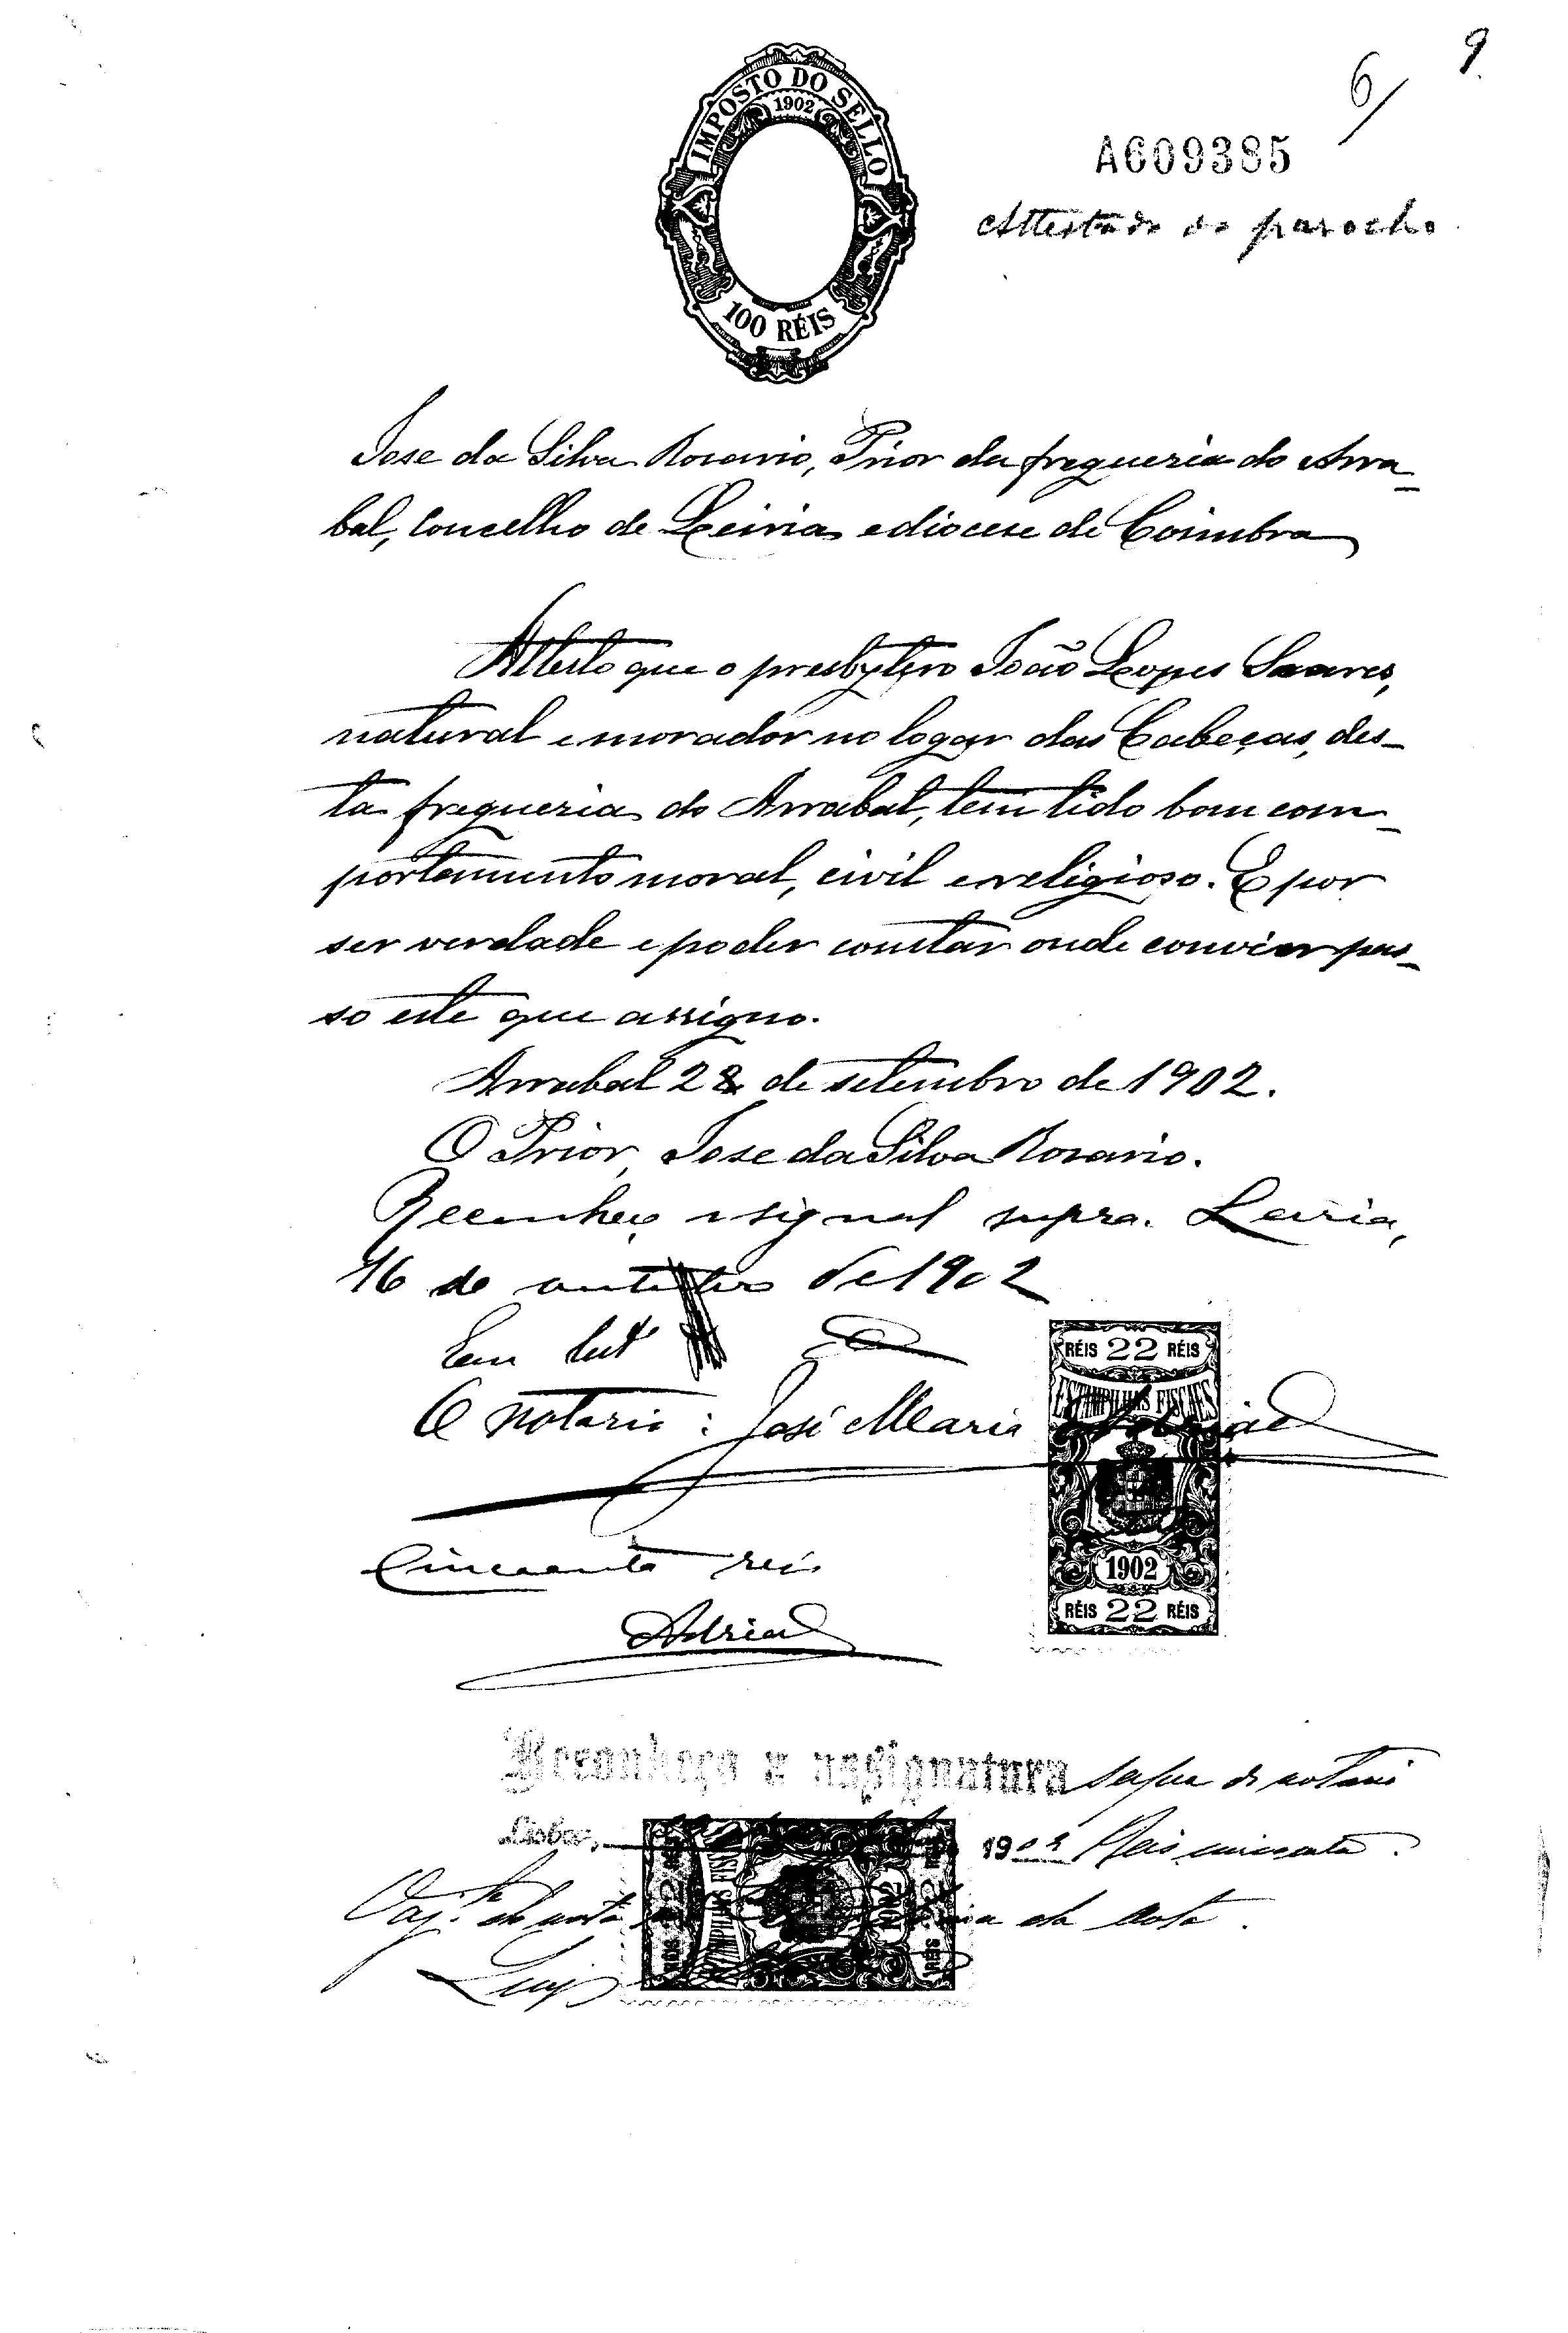 9
6/
IMPOSTO DO SELLO
1902
100 RÉIS
A609385
Attestado do parocho
Jose da Silva Rosario, Prior da freguezia do Arra-
bal, Concelho de Leiria e diocese de Coimbra
Attesto que o presbytero João Lopes Soares,
natural e morador no logar das Cabeças, des-
ta freguezia do Arrabal, tem tido bom com-
portamento moral, civil e religioso. E por
ser verdade e poder constar onde convier pas-
so este que assigno.
Arrabal 28 de setembro de 1902.
O Prior, Jose da Silva Rosario.
Reconheço o signal supra. Leiria,
16 de outubro de 1902
Em
O notario: José Maria
RÉIS 22 RÉIS
ESTAMPILHAS FISCAES
1902
RÉIS 22 RÉIS
Cincoenta reis
Adrião
Reconheço a assignatura supra do notario
Lisboa, 1902 Reis cincoenta.
da nota.
Luiz